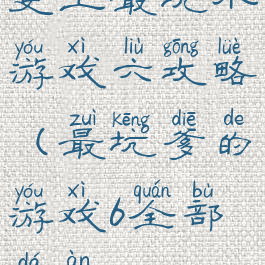 yóu xì liù gōng lüè
游戏六攻略
zuì kēng diē de
(最坑爹的
yóu xì quán bù
游戏6全部
dá àn